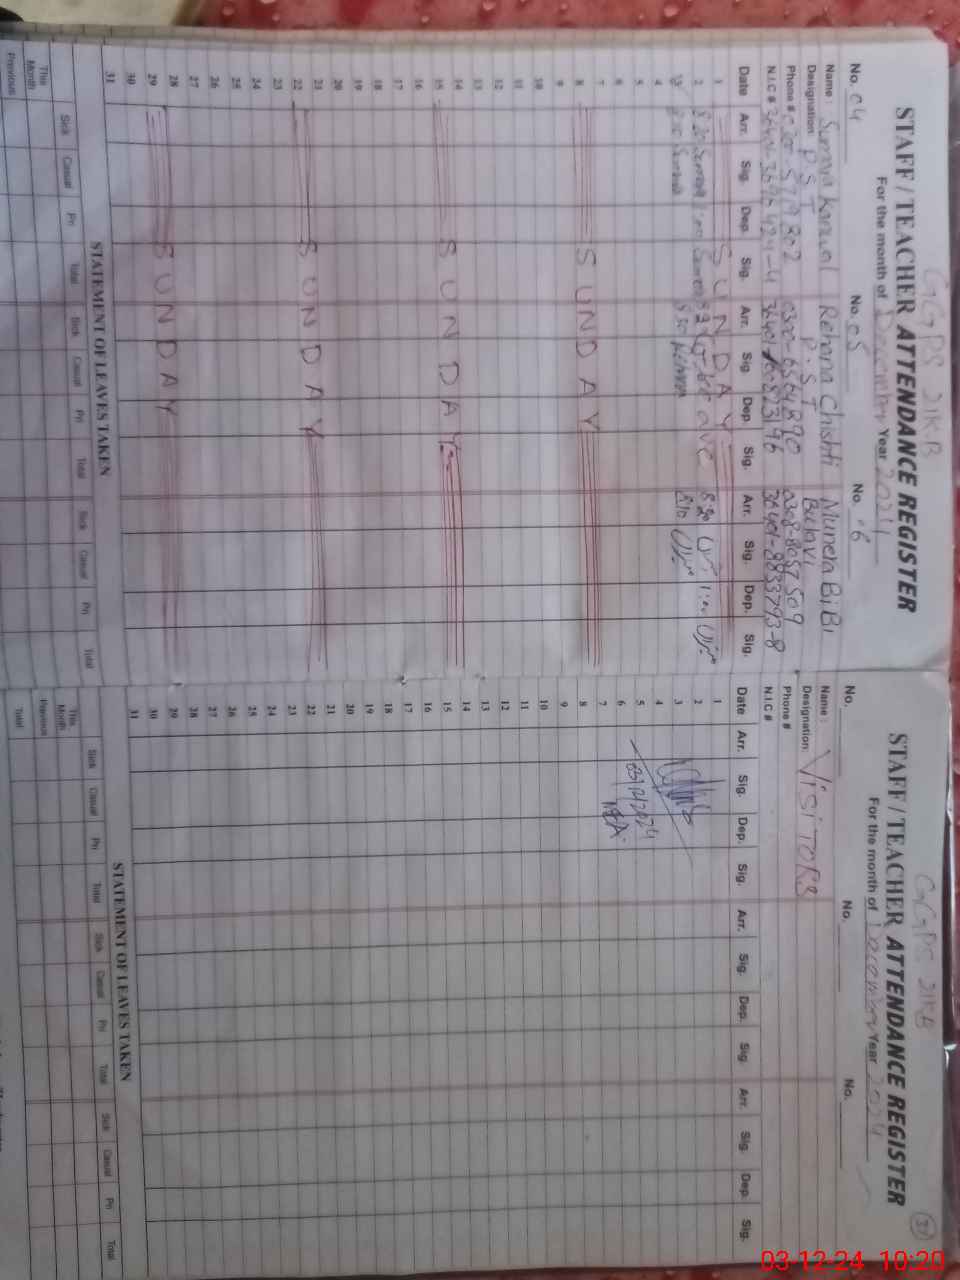 GGPS 21KB
STAFF / TEACHER ATTENDANCE REGISTER
For the month of December Year 2024
No. 04 No. 05 No. 06
Name : Sumra Kanwal Rehana Chishti Munera BiBi
Designation: P S T P.S.T Bulavi
Phone #
N.I.C #
Date Arr. Sig. Dep. Sig. Arr. Sig. Dep. Sig. Arr. Sig. Dep. Sig.
1 SUNDAY
2 8 20
3 8 50 Rehana 8 10
4
5
6
7
8 SUNDAY
9
10
11
12
13
14
15 SUNDAY
16
17
18
19
20
21
22 SUNDAY
23
24
25
26
27
28
29 SUNDAY
30
31
STATEMENT OF LEAVES TAKEN
Sick Casual Pri Total Sick Casual Pri Total Sick Casual Pri Total
This Month
Previous
GGPS 21KB
STAFF / TEACHER ATTENDANCE REGISTER
For the month of December Year 2024
No. No. No.
Name :
Designation: VISITORS
Phone #
N.I.C #
Date Arr. Sig. Dep. Sig. Arr. Sig. Dep. Sig. Arr. Sig. Dep. Sig.
1
2
3
4
5 03/12/2024
6
7
8
9
10
11
12
13
14
15
16
17
18
19
20
21
22
23
24
25
26
27
28
29
30
31
STATEMENT OF LEAVES TAKEN
Sick Casual Pri Total Sick Casual Pri Total Sick Casual Pri Total
This Month
Previous
Total
03-12-24 10:20